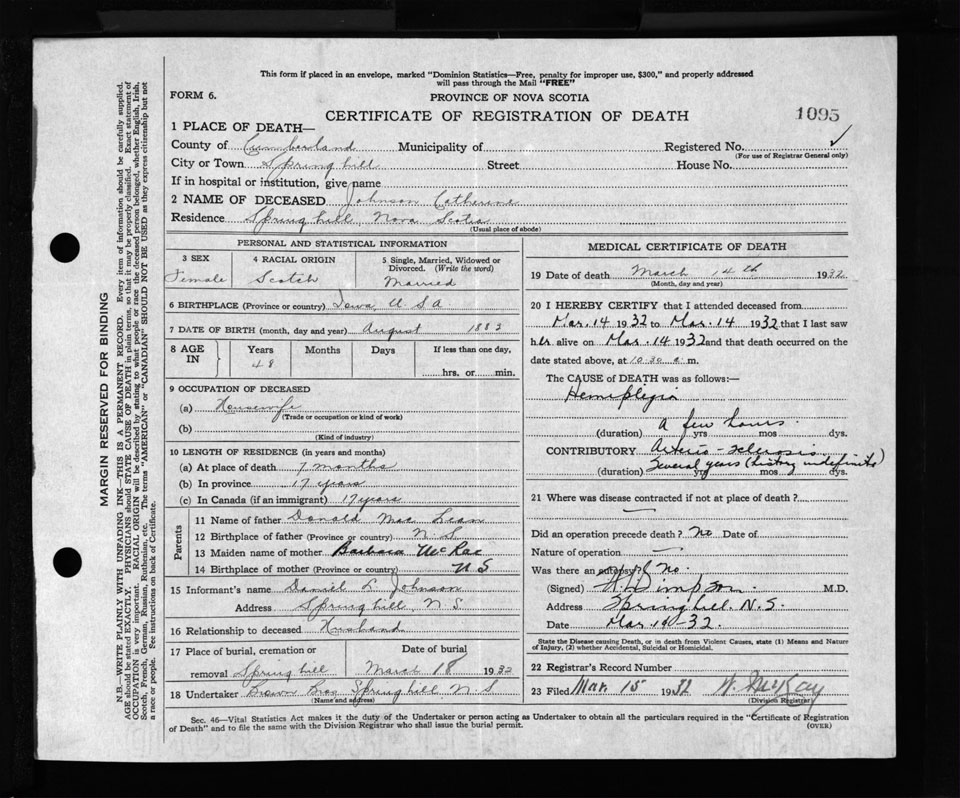 This form if placed in an envelope, marked "Dominion Statistics—Free, penalty for improper use, $300," and properly addressed
will pass through the Mail "FREE"
FORM 6.
PROVINCE OF NOVA SCOTIA
CERTIFICATE OF REGISTRATION OF DEATH
1095
1 PLACE OF DEATH—
County of Cumberland Municipality of Registered No. ✓
(For use of Registrar General only)
City or Town Springhill Street House No.
If in hospital or institution, give name
2 NAME OF DECEASED Johnson Catherine
Residence Springhill, Nova Scotia
(Usual place of abode)
PERSONAL AND STATISTICAL INFORMATION
3 SEX
Female
4 RACIAL ORIGIN
Scotch
5 Single, Married, Widowed or
Divorced. (Write the word)
Married
6 BIRTHPLACE (Province or country) Iowa, U S A
7 DATE OF BIRTH (month, day and year) August 1883
8 AGE
IN
Years
48
Months
Days
If less than one day,
hrs. or min.
9 OCCUPATION OF DECEASED
(a) Housewife
(Trade or occupation or kind of work)
(b)
(Kind of industry)
10 LENGTH OF RESIDENCE (in years and months)
(a) At place of death 7 months
(b) In province 17 years
(c) In Canada (if an immigrant) 17 years
Parents
11 Name of father Donald Mac Lean
12 Birthplace of father (Province or country) N. S.
13 Maiden name of mother Barbara McRae
14 Birthplace of mother (Province or country) N S
15 Informant's name Daniel L. Johnson
Address Springhill, N. S.
16 Relationship to deceased Husband
17 Place of burial, cremation or
removal Springhill
Date of burial
March 18 1932
18 Undertaker Brown Bros Springhill N. S.
(Name and address)
MEDICAL CERTIFICATE OF DEATH
19 Date of death March 14th 1932
(Month, day and year)
20 I HEREBY CERTIFY that I attended deceased from
Mar. 14 1932 to Mar. 14 1932 that I last saw
her alive on Mar. 14 1932 and that death occurred on the
date stated above, at 10.30 a. m.
The CAUSE of DEATH was as follows:—
Hemiplegia
a few hours
(duration) yrs mos dys.
CONTRIBUTORY Arterio-sclerosis
Several years (history indefinite)
(duration) yrs mos dys
21 Where was disease contracted if not at place of death?
—
Did an operation precede death? no Date of
Nature of operation —
Was there an autopsy? No.
(Signed) Simpson M.D.
Address Springhill. N.S.
Date Mar. 14-32.
State the Disease causing Death, or in death from Violent Causes, state (1) Means and Nature
of Injury, (2) whether Accidental, Suicidal or Homicidal.
22 Registrar's Record Number
23 Filed Mar. 15 1932 W. McKay
(Division Registrar)
Sec. 46—Vital Statistics Act makes it the duty of the Undertaker or person acting as Undertaker to obtain all the particulars required in the "Certificate of Registration
of Death" and to file the same with the Division Registrar who shall issue the burial permit.
(OVER)
MARGIN RESERVED FOR BINDING
N.B.—WRITE PLAINLY WITH UNFADING INK—THIS IS A PERMANENT RECORD. Every item of information should be carefully supplied.
AGE should be stated EXACTLY. PHYSICIANS should STATE CAUSE OF DEATH in plain terms, so that it may be properly classified. Exact statement of
OCCUPATION is very important. RACIAL ORIGIN will be described by stating to what people or race the deceased person belonged, whether English, Irish,
Scotch, French, German, Russian, Ruthenian, etc. The terms "AMERICAN" or "CANADIAN" SHOULD NOT BE USED as they express citizenship but not
a race or people. See instructions on back of Certificate.